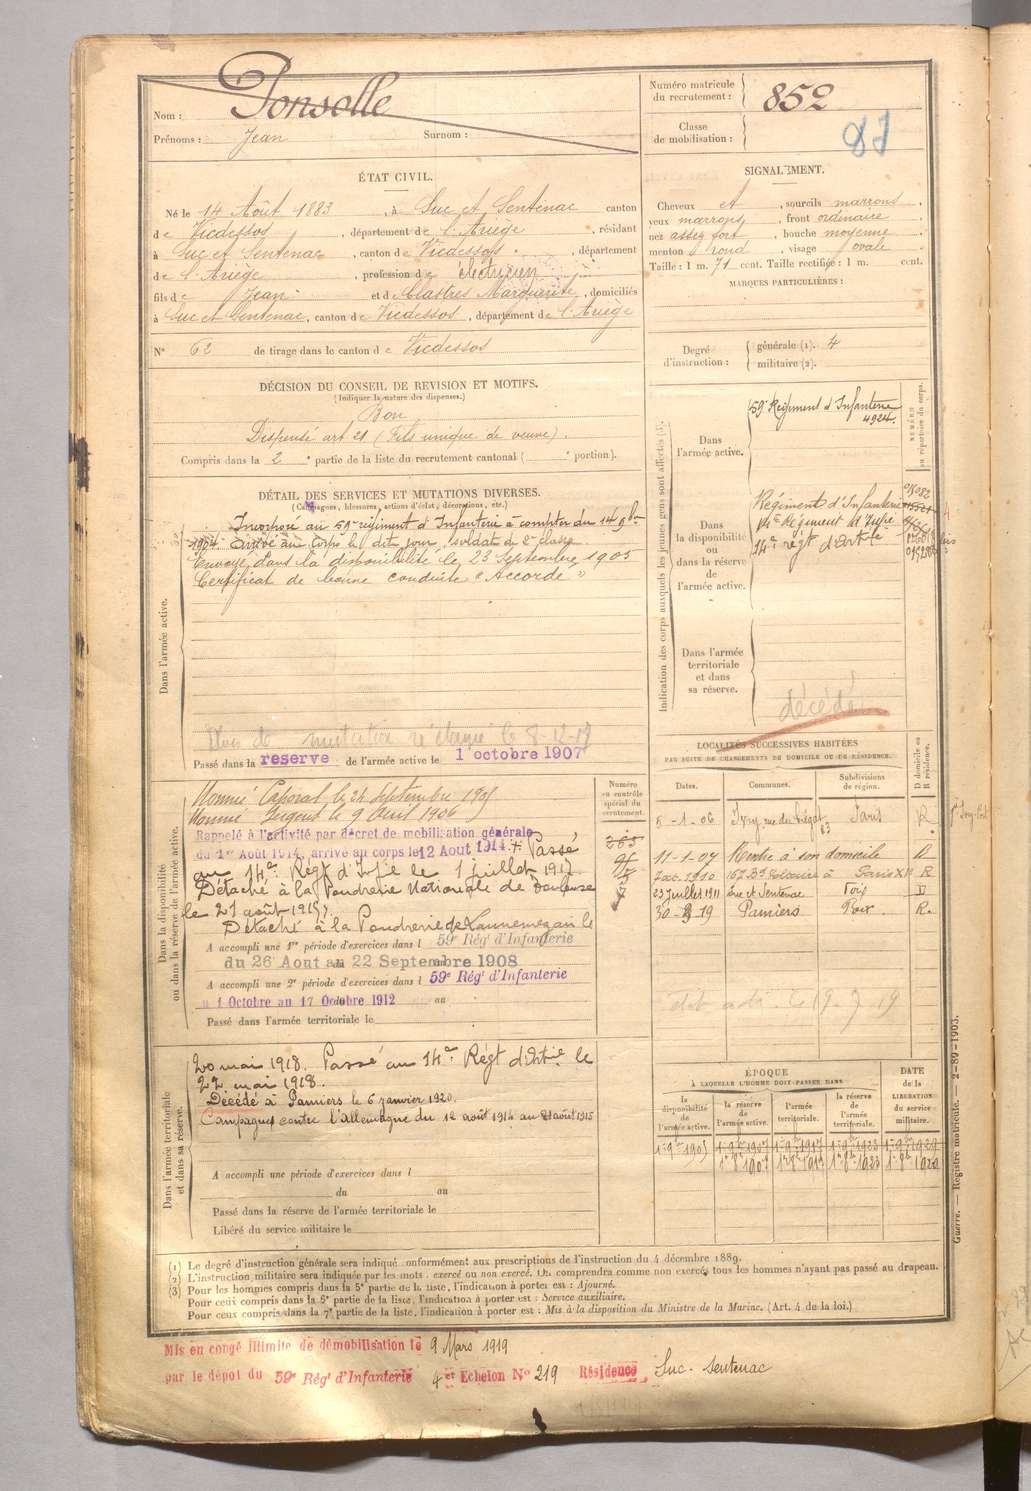 Nom : Ponsolle
Prénoms : Jean Surnom :
Numéro matricule
du recrutement : 852
Classe
de mobilisation :
ÉTAT CIVIL.
Né le 14 Août 1883, à Suc et Sentenac canton
de Vicdessos, département de l'Ariège, résidant
à Suc et Sentenac, canton de Vicdessos, département
de l'Ariège, profession de électricien
fils de Jean et de Clastres Marguerite, domiciliés
à Suc et Sentenac, canton de Vicdessos, département de l'Ariège
N° 62 de tirage dans le canton de Vicdessos
SIGNALEMENT.
Cheveux et, sourcils marrons,
yeux marrons, front ordinaire
nez assez fort, bouche moyenne
menton rond, visage ovale
Taille : 1 m. 71 cent. Taille rectifiée : 1 m. cent.
MARQUES PARTICULIÈRES :
Degré
d'instruction :
générale (1). 4
militaire (2).
DÉCISION DU CONSEIL DE REVISION ET MOTIFS.
(Indiquer la nature des dispenses.)
Bon
Dispensé art 21 (Fils unique de veuve).
Compris dans la 2e partie de la liste du recrutement cantonal ( e portion).
DÉTAIL DES SERVICES ET MUTATIONS DIVERSES.
(Campagnes, blessures, actions d'éclat, décorations, etc.)
Dans l'armée active.
Incorporé au 59e régiment d'Infanterie à compter du 14 9bre
1904. Arrivé au corps le dit jour, soldat de 2e classe
Envoyé dans la disponibilité le 23 Septembre 1905
Certificat de bonne conduite "Accordé"
Avis de mutation
Passé dans la réserve de l'armée active le 1 octobre 1907
Indication des corps auxquels les jeunes gens sont affectés (3).
NUMÉRO
au répertoire du corps.
Dans
l'armée active.
59e Régiment d'Infanterie
4924.
Dans
la disponibilité
ou
dans la réserve
de
l'armée active.
Régiment d'Infanterie
14e Régiment d'Infie
14e régt d'Artie
Dans l'armée
territoriale
et dans
sa réserve.
décédé
LOCALITÉS SUCCESSIVES HABITÉES
PAR SUITE DE CHANGEMENTS DE DOMICILE OU DE RÉSIDENCE.
Dates. Communes. Subdivisions de région. D domicile ou R résidence.
8-1-06 Ivry, rue du Liégat 63 Paris R
11-1-07 Rentre à son domicile D
7 oct. 1910 167 Bd à Paris XV R
23 Juillet 1911 Suc et Sentenac Foix D
Pamiers Foix R.
Dans la disponibilité
ou dans la réserve de l'armée active.
Numéro
au contrôle
spécial du
recrutement.
Nommé Caporal le 24 Septembre 1905
Nommé Sergent le 9 Avril 1906
Rappelé à l'activité par décret de mobilisation générale
du 1er Août 1914, arrivé au corps le 12 Aout 1914. + Passé
au 14e Régt d'Infie le 1 juillet 1917
Détaché à la Poudrerie Nationale de Toulouse
le 21 août 1915.
Détaché à la Poudrerie de Lannemezan le
A accompli une 1re période d'exercices dans l 59e Régt d'Infanterie
du 26 Aout au 22 Septembre 1908
A accompli une 2e période d'exercices dans l 59e Régt d'Infanterie
du 1 Octobre au 17 Octobre 1912 au
Passé dans l'armée territoriale le
Dans l'armée territoriale
et dans sa réserve.
20 mai 1918. Passé au 14e Régt d'Artie le
22 mai 1918.
Décédé à Pamiers le 6 janvier 1920.
Campagnes contre l'Allemagne du 12 août 1914 au 21 août 1915
A accompli une période d'exercices dans l
du au
Passé dans la réserve de l'armée territoriale le
Libéré du service militaire le
ÉPOQUE
À LAQUELLE L'HOMME DOIT PASSER DANS
la disponibilité de l'armée active. la réserve de l'armée active. l'armée territoriale. la réserve de l'armée territoriale. DATE de la LIBÉRATION du service militaire.
1er 9bre 1905 1er 9bre 1907 1er 9bre 1917 1er 9bre 1923 1er 9bre 1929
1er 8bre 1907 1er 8bre 1917 1er 8bre 1923
(1) Le degré d'instruction générale sera indiqué conformément aux prescriptions de l'instruction du 4 décembre 1889.
(2) L'instruction militaire sera indiquée par les mots : exercé ou non exercé. On comprendra comme non exercés tous les hommes n'ayant pas passé au drapeau.
(3) Pour les hommes compris dans la 5e partie de la liste, l'indication à porter est : Ajourné.
Pour ceux compris dans la 6e partie de la liste, l'indication à porter est : Service auxiliaire.
Pour ceux compris dans la 7e partie de la liste, l'indication à porter est : Mis à la disposition du Ministre de la Marine. (Art. 4 de la loi.)
Guerre. — Registre matricule. — 2-89-1903.
Mis en congé illimité de démobilisation le 9 Mars 1919
par le dépôt du 59e Régt d'Infanterie 4er Echelon N° 219 Résidence Suc-Sentenac